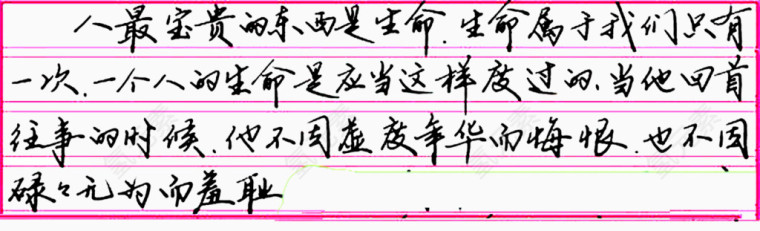 人最宝贵的东西是生命.生命属于我们只有
一次.一个人的生命是应当这样度过的.当他回首
往事的时候.他不因虚度年华而悔恨.也不因
碌々无为而羞耻